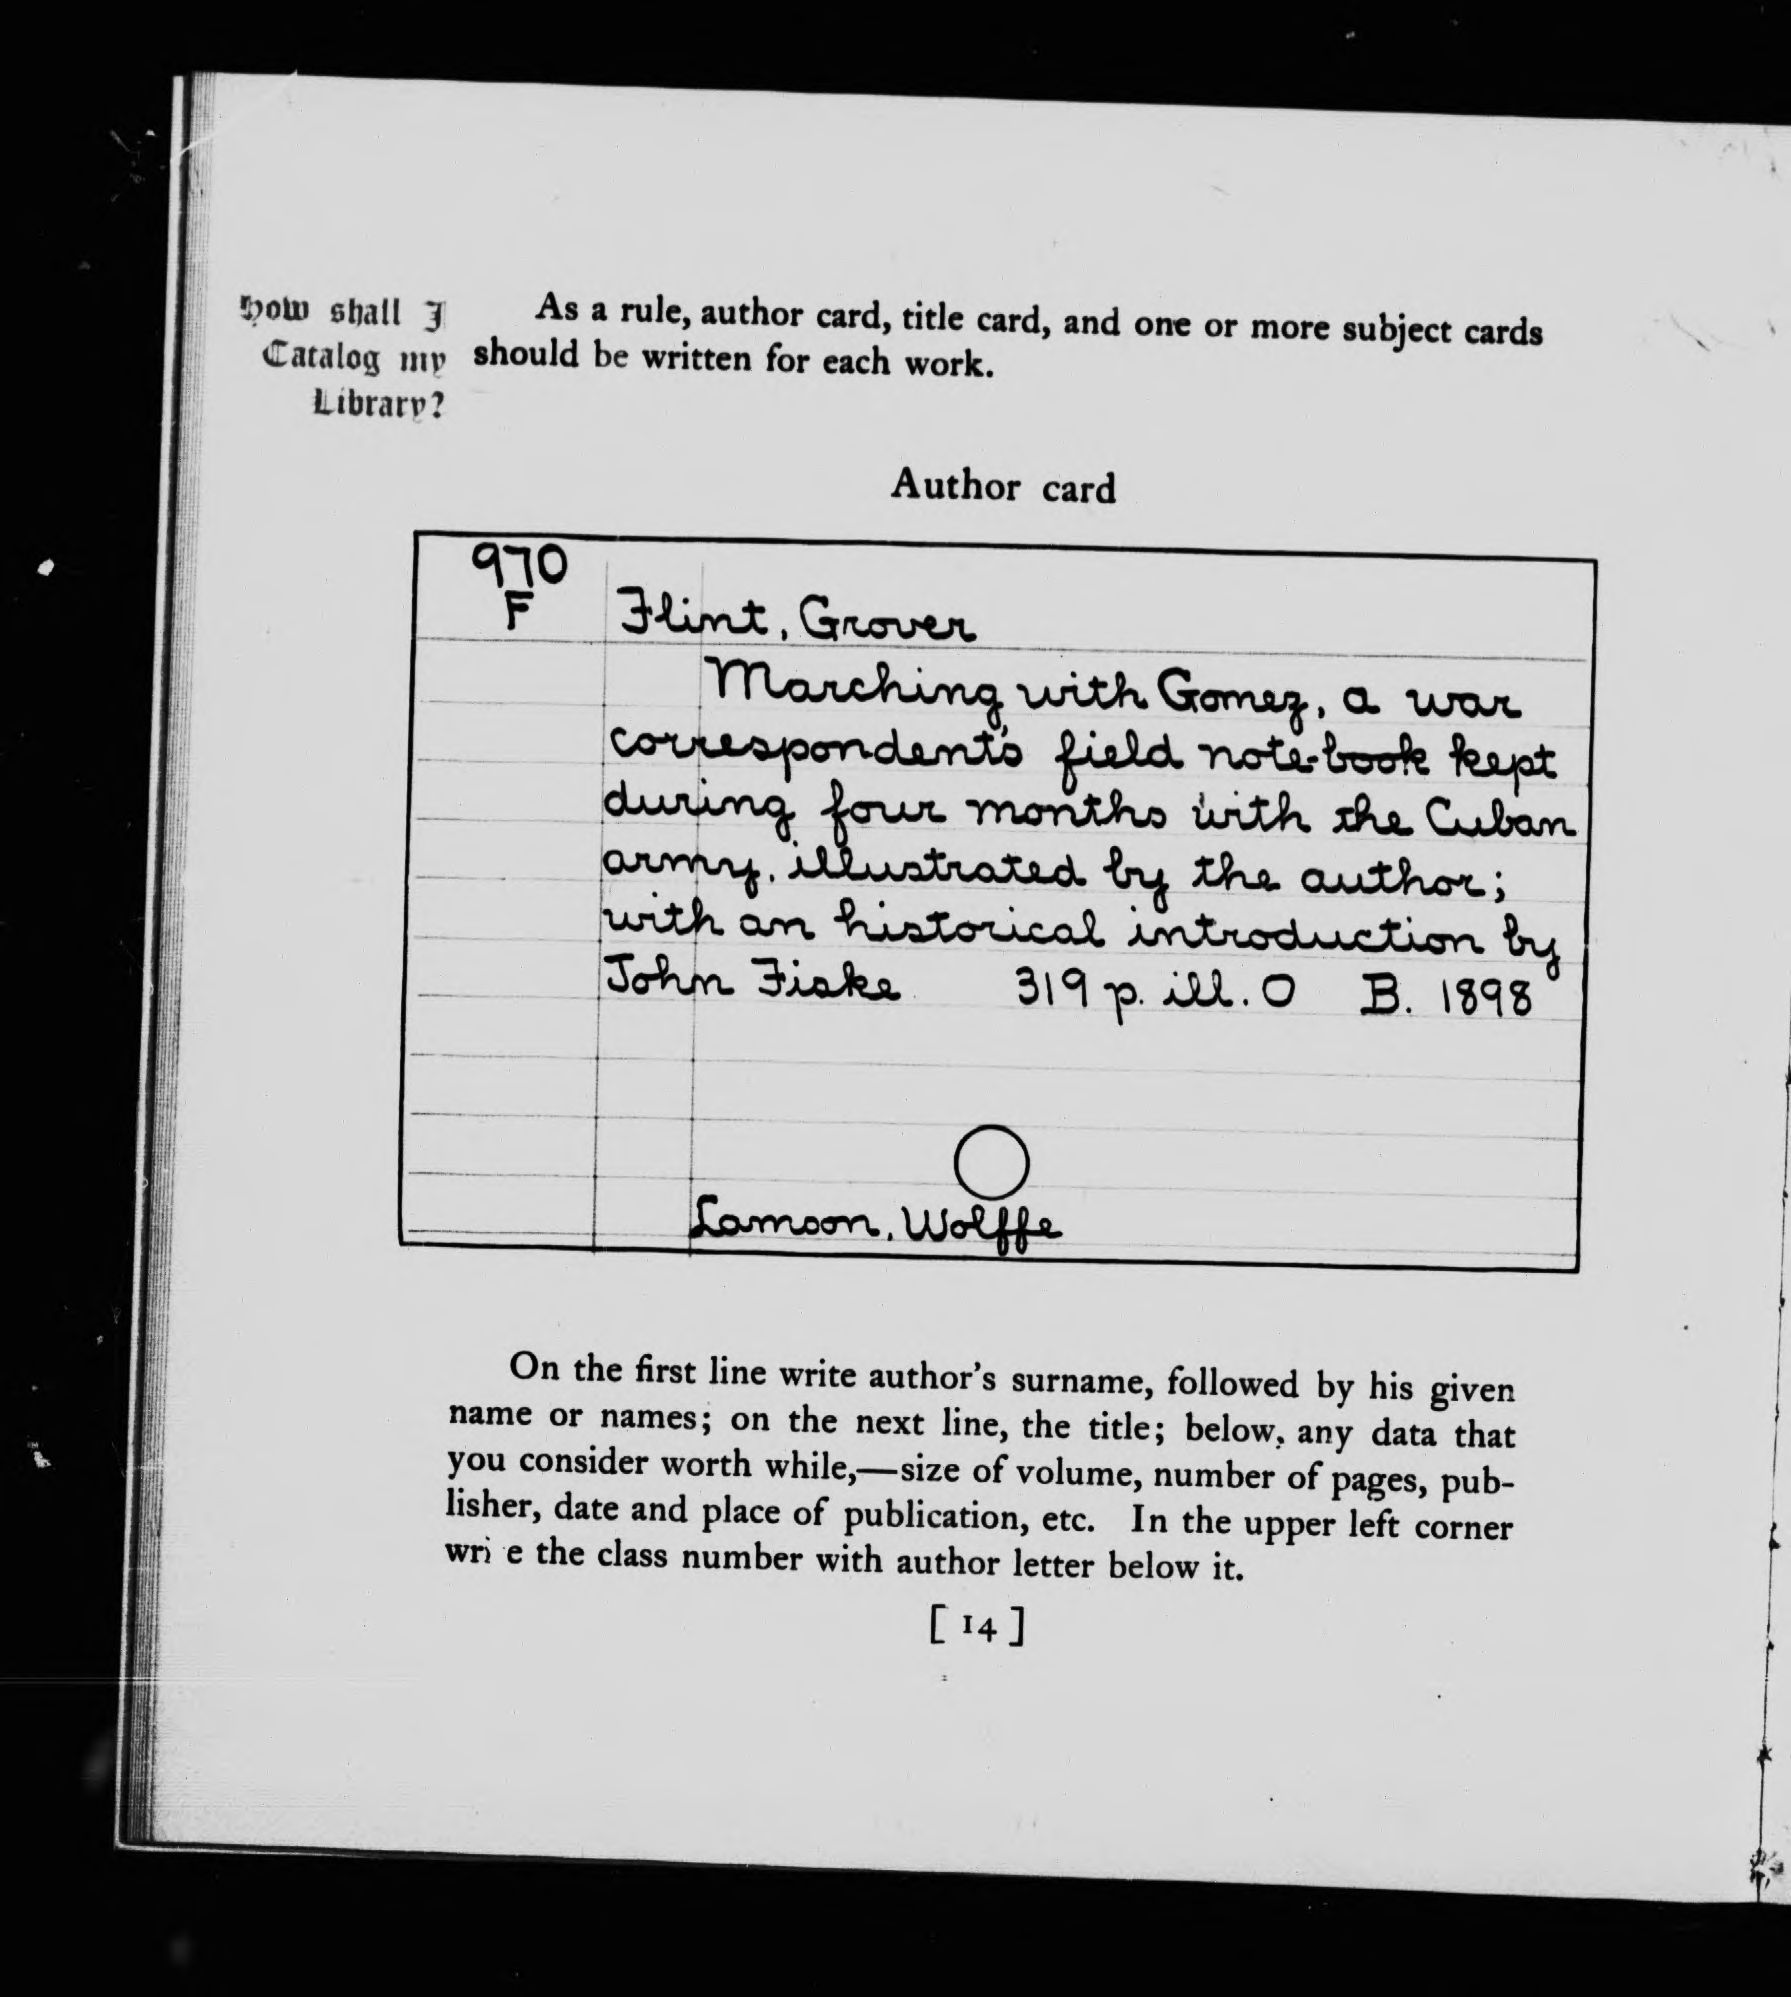 How shall I
Catalog my
Library?
As a rule, author card, title card, and one or more subject cards
should be written for each work.
Author card
970
F
Flint, Grover
Marching with Gomez, a war
correspondent's field note-book kept
during four months with the Cuban
army, illustrated by the author;
with an historical introduction by
John Fiske 319 p. ill. O B. 1898
Lamson, Wolffe
On the first line write author's surname, followed by his given
name or names; on the next line, the title; below, any data that
you consider worth while,—size of volume, number of pages, pub-
lisher, date and place of publication, etc. In the upper left corner
wri e the class number with author letter below it.
[ 14 ]